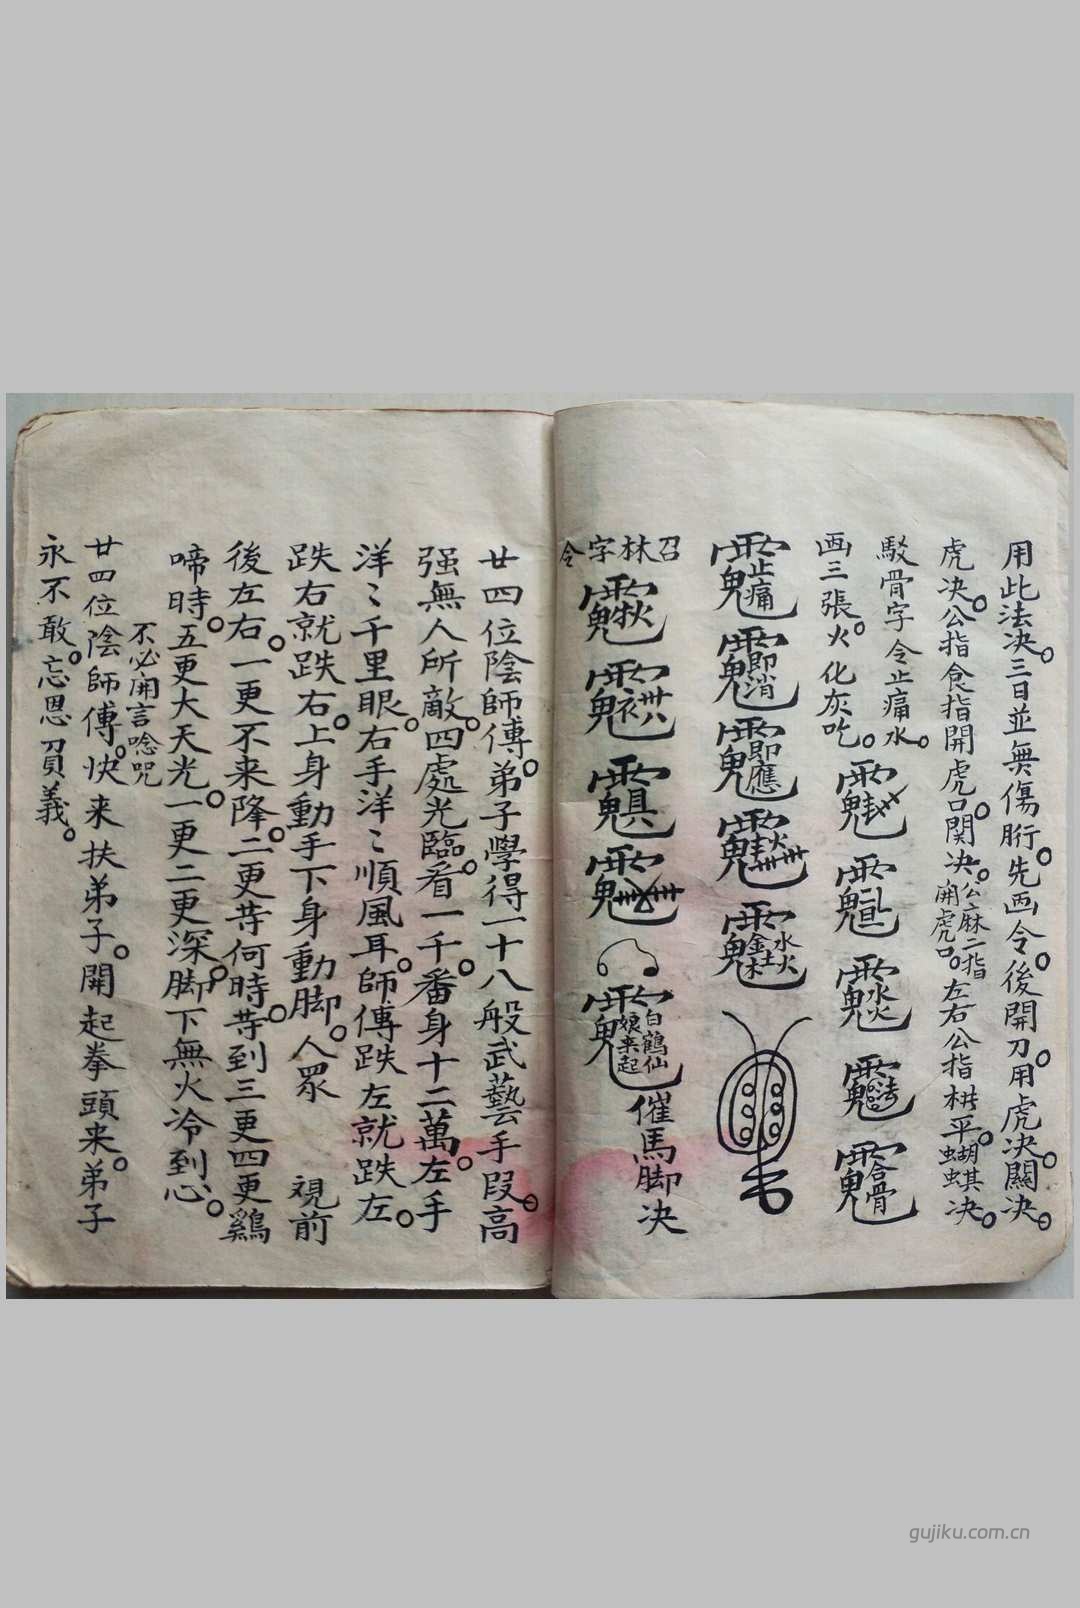 用此法决。三日並無傷胻。先画令。後開刀。用虎决。關决。
虎决。公指食指開虎口。関决。公麻二指開虎口。左右公指栱平。蝴蜞决。
駁骨字令止痛水。
画三張。火化灰吃。
止痛
即消
即應
金木水火土
合骨
召林字令
白鶴仙娘来起
催馬脚决
廿四位陰師傅。弟子學得一十八般武藝手段。高
强無人所敵。四處光臨。看一千。番身十二萬。左手
洋〻千里眼。右手洋〻順風耳。師傅跌左就跌左。
跌右就跌右。上身動手下身動脚。人眾 視前
後左右。一更不来降。二更䓁何時。䓁到三更四更鷄
啼時。五更大天光。一更二更深。脚下無火冷到心。
不必開言唸咒
廿四位陰師傅。快来扶弟子。開起拳頭来。弟子
永不敢。忘恩負義。
gujiku.com.cn